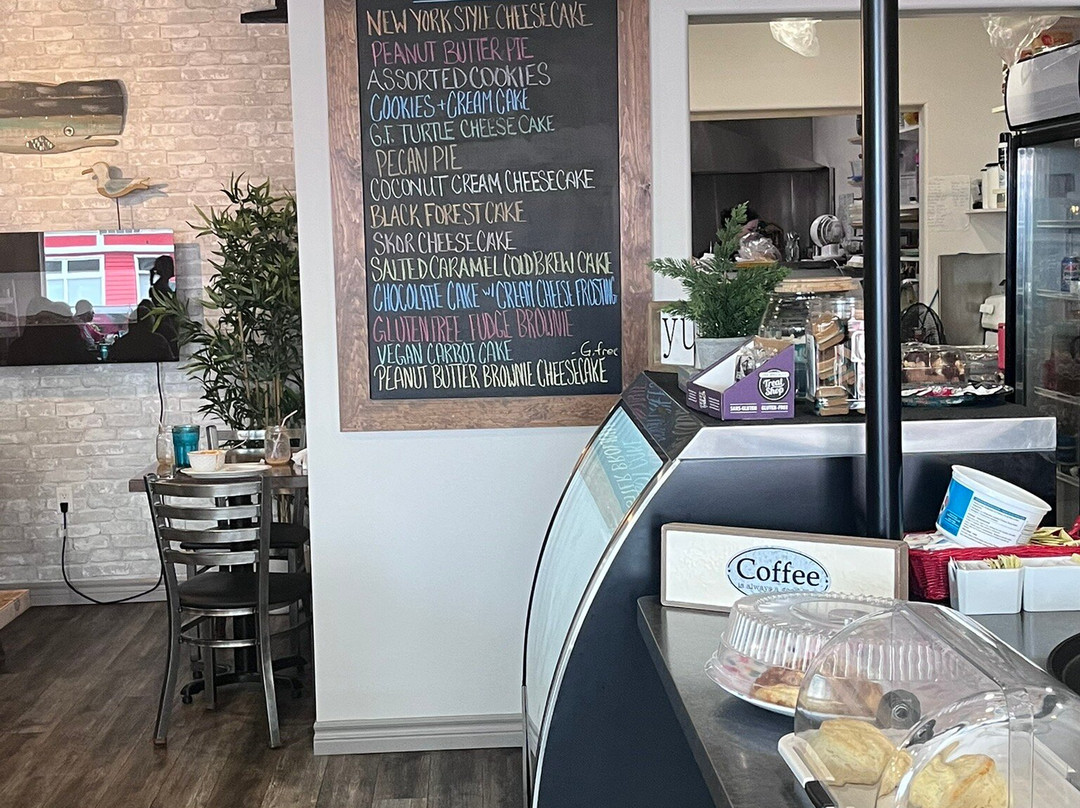 NEW YORK STYLE CHEESECAKE
PEANUT BUTTER PIE
ASSORTED COOKIES
COOKIES + CREAM CAKE
G.F. TURTLE CHEESECAKE
PECAN PIE
COCONUT CREAM CHEESECAKE
BLACK FOREST CAKE
SKOR CHEESECAKE
SALTED CARAMEL COLD BREW CAKE
CHOCOLATE CAKE w/ CREAM CHEESE FROSTING
GLUTEN FREE FUDGE BROWNIE
VEGAN CARROT CAKE
- G. free
PEANUT BUTTER BROWNIE CHEESECAKE
yu
Treat
Shop
SANS-GLUTEN GLUTEN-FREE
Coffee
is always a